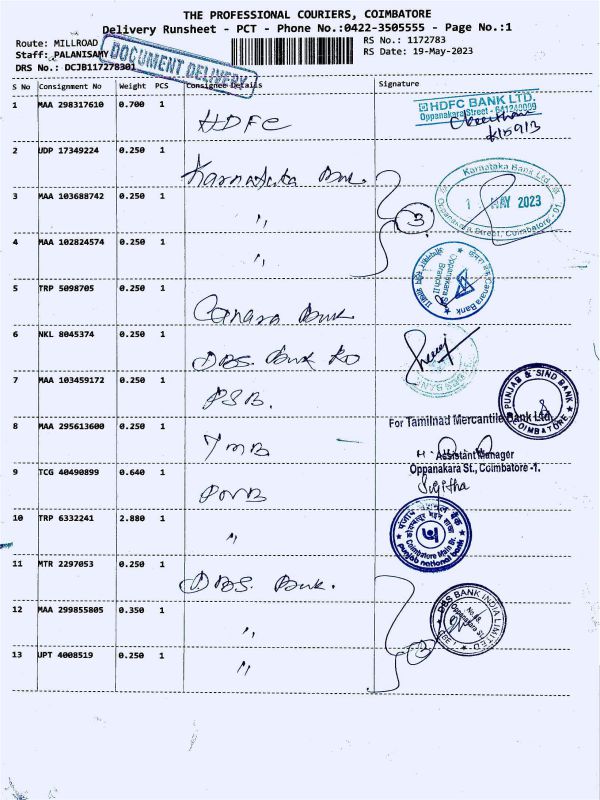 THE PROFESSIONAL COURIERS, COIMBATORE
Delivery Runsheet - PCT - Phone No.:0422-3505555 - Page No.:1
Route: MILLROAD
RS No.: 1172783
Staff: PALANISAMY
RS Date: 19-May-2023
DRS No.: DCJB117278301
DOCUMENT DELIVERY
S No Consignment No Weight PCS Consignee Details Signature
1 MAA 298317610 0.700 1 HDFC
HDFC BANK LTD.
Oppanakara Street - 641240009
2 UDP 17349224 0.250 1 Karnataka Bank.
Karnataka Bank Ltd.
MAY 2023
Oppanakara Street, Coimbatore - 01
3 MAA 103688742 0.250 1 ,,
3
4 MAA 102824574 0.250 1 ,,
5 TRP 5098705 0.250 1 Canara Bank
Canara Bank
Oppanakara St.
Branch II
6 NKL 8045374 0.250 1 DBS. Bank RO
7 MAA 103459172 0.250 1 PSB.
PUNJAB & SIND BANK
COIMBATORE
8 MAA 295613600 0.250 1 TMB
For Tamilnad Mercantile Bank Ltd.
Assistant Manager
Oppanakara St., Coimbatore -1.
9 TCG 40490899 0.640 1 PNB
Sujitha
10 TRP 6332241 2.880 1 ,,
पंजाब नैशनल बैंक
Coimbatore Main Br.
punjab national bank
11 MTR 2297053 0.250 1 DBS. Bank.
12 MAA 299855805 0.350 1 ,,
DBS BANK INDIA LIMITED
Oppanakara St.
13 UPT 4008519 0.250 1 ,,